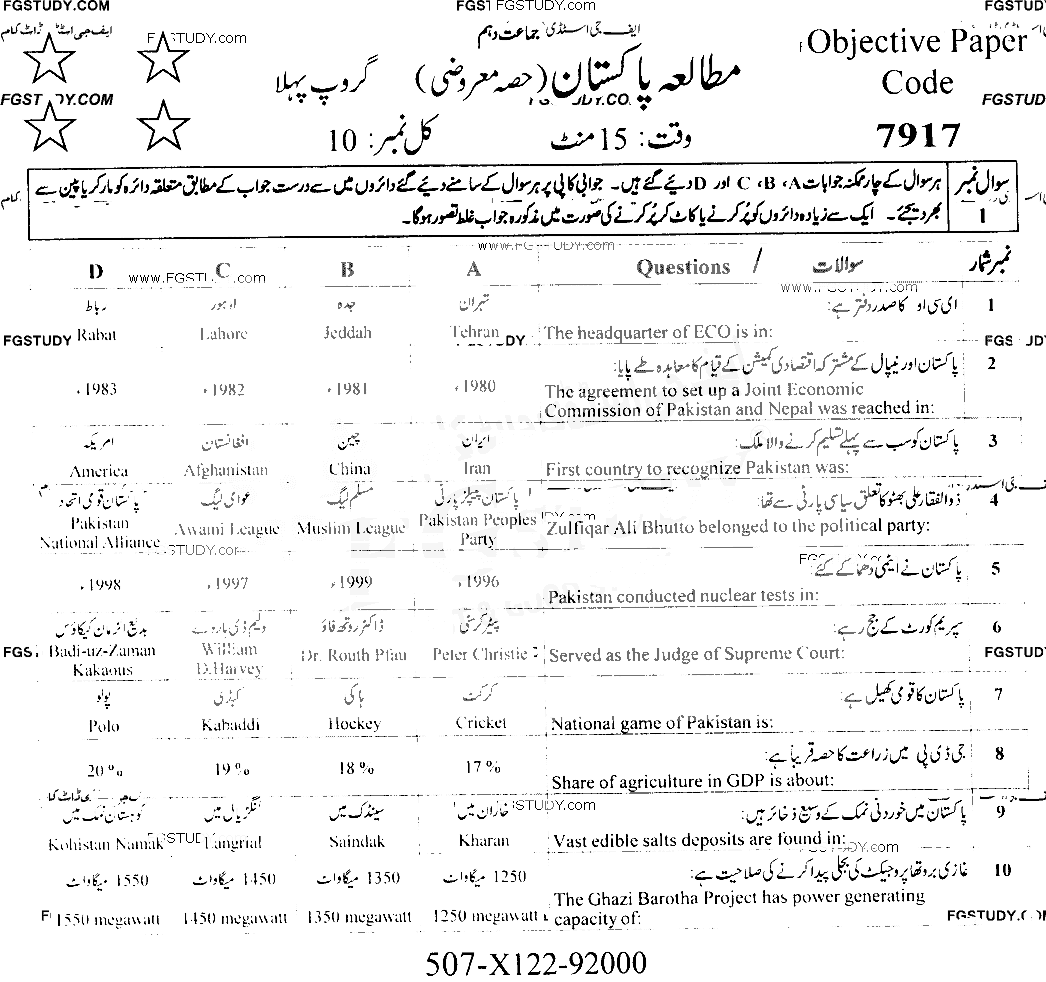 FGSTUDY.COM
FGSTUDY.com
ایف جی اسٹڈی جماعت دہم
مطالعہ پاکستان (حصہ معروضی) گروپ پہلا
Objective Paper
Code
7917
FGSTUDY.COM
وقت: 15 منٹ
کل نمبر: 10
سوال نمبر 1
ہر سوال کے چار ممکنہ جوابات A، B، C اور D دیئے گئے ہیں۔ جوابی کاپی پر ہر سوال کے سامنے دیئے گئے دائروں میں سے درست جواب کے مطابق متعلقہ دائرہ کو مارکر یا پین سے
بھر دیجئے۔ ایک سے زیادہ دائروں کو پُر کرنے یا کاٹ کر پُر کرنے کی صورت میں مذکورہ جواب غلط تصور ہوگا۔
D C B A Questions / سوالات نمبر شمار
رباط لاہور جدہ تہران ای سی او کا صدر دفتر ہے: 1
Rabat Lahore Jeddah Tehran The headquarter of ECO is in:
پاکستان اور نیپال کے مشترکہ اقتصادی کمیشن کے قیام کا معاہدہ طے پایا: 2
1983ء 1982ء 1981ء 1980ء The agreement to set up a Joint Economic
Commission of Pakistan and Nepal was reached in:
امریکہ افغانستان چین ایران پاکستان کو سب سے پہلے تسلیم کرنے والا ملک: 3
America Afghanistan China Iran First country to recognize Pakistan was:
پاکستان قومی اتحاد عوامی لیگ مسلم لیگ پاکستان پیپلز پارٹی ذوالفقار علی بھٹو کا تعلق سیاسی پارٹی سے تھا: 4
Pakistan National Alliance Awami League Muslim League Pakistan Peoples Party Zulfiqar Ali Bhutto belonged to the political party:
پاکستان نے ایٹمی دھماکے کئے: 5
1998ء 1997ء 1999ء 1996ء Pakistan conducted nuclear tests in:
بدیع الزمان کیکاؤس ولیم ڈی ہاروے ڈاکٹر روتھ فاؤ پیٹر کرسٹی سپریم کورٹ کے جج رہے: 6
Badi-uz-Zaman Kakaous William D.Harvey Dr. Routh Pfau Peter Christie Served as the Judge of Supreme Court:
پولو کبڈی ہاکی کرکٹ پاکستان کا قومی کھیل ہے: 7
Polo Kabaddi Hockey Cricket National game of Pakistan is:
جی ڈی پی میں زراعت کا حصہ قریباً ہے: 8
20% 19% 18% 17% Share of agriculture in GDP is about:
کوہستان نمک میں لنگڑیال میں سینڈک میں خاران میں پاکستان میں خوردنی نمک کے وسیع ذخائر ہیں: 9
Kohistan Namak Langrial Saindak Kharan Vast edible salts deposits are found in:
1550 میگاواٹ 1450 میگاواٹ 1350 میگاواٹ 1250 میگاواٹ غازی بروتھا پروجیکٹ کی بجلی پیدا کرنے کی صلاحیت ہے: 10
1550 megawatt 1450 megawatt 1350 megawatt 1250 megawatt The Ghazi Barotha Project has power generating
capacity of:
507-X122-92000